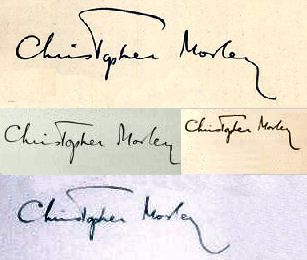 Christopher Morley
Christopher Morley
Christopher Morley
Christopher Morley